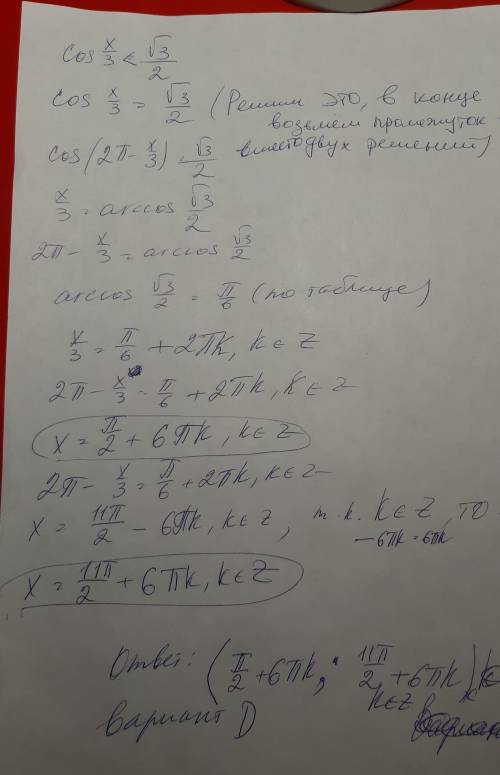 cos x/3 < √3/2
cos x/3 = √3/2 (Решим это, в конце
возьмём промежуток
cos(2π - x/3) = √3/2 вместо двух решений)
x/3 = arccos √3/2
2π - x/3 = arccos √3/2
arccos √3/2 = π/6 (по таблице)
x/3 = π/6 + 2πk, k ∈ Z
2π - x/3 = π/6 + 2πk, k ∈ Z
x = π/2 + 6πk, k ∈ Z
2π - x/3 = π/6 + 2πk, k ∈ Z
x = 11π/2 - 6πk, k ∈ Z, т.к. k ∈ Z, то
-6πk = 6πk
x = 11π/2 + 6πk, k ∈ Z
Ответ: (π/2 + 6πk; 11π/2 + 6πk)
k ∈ Z
вариант D